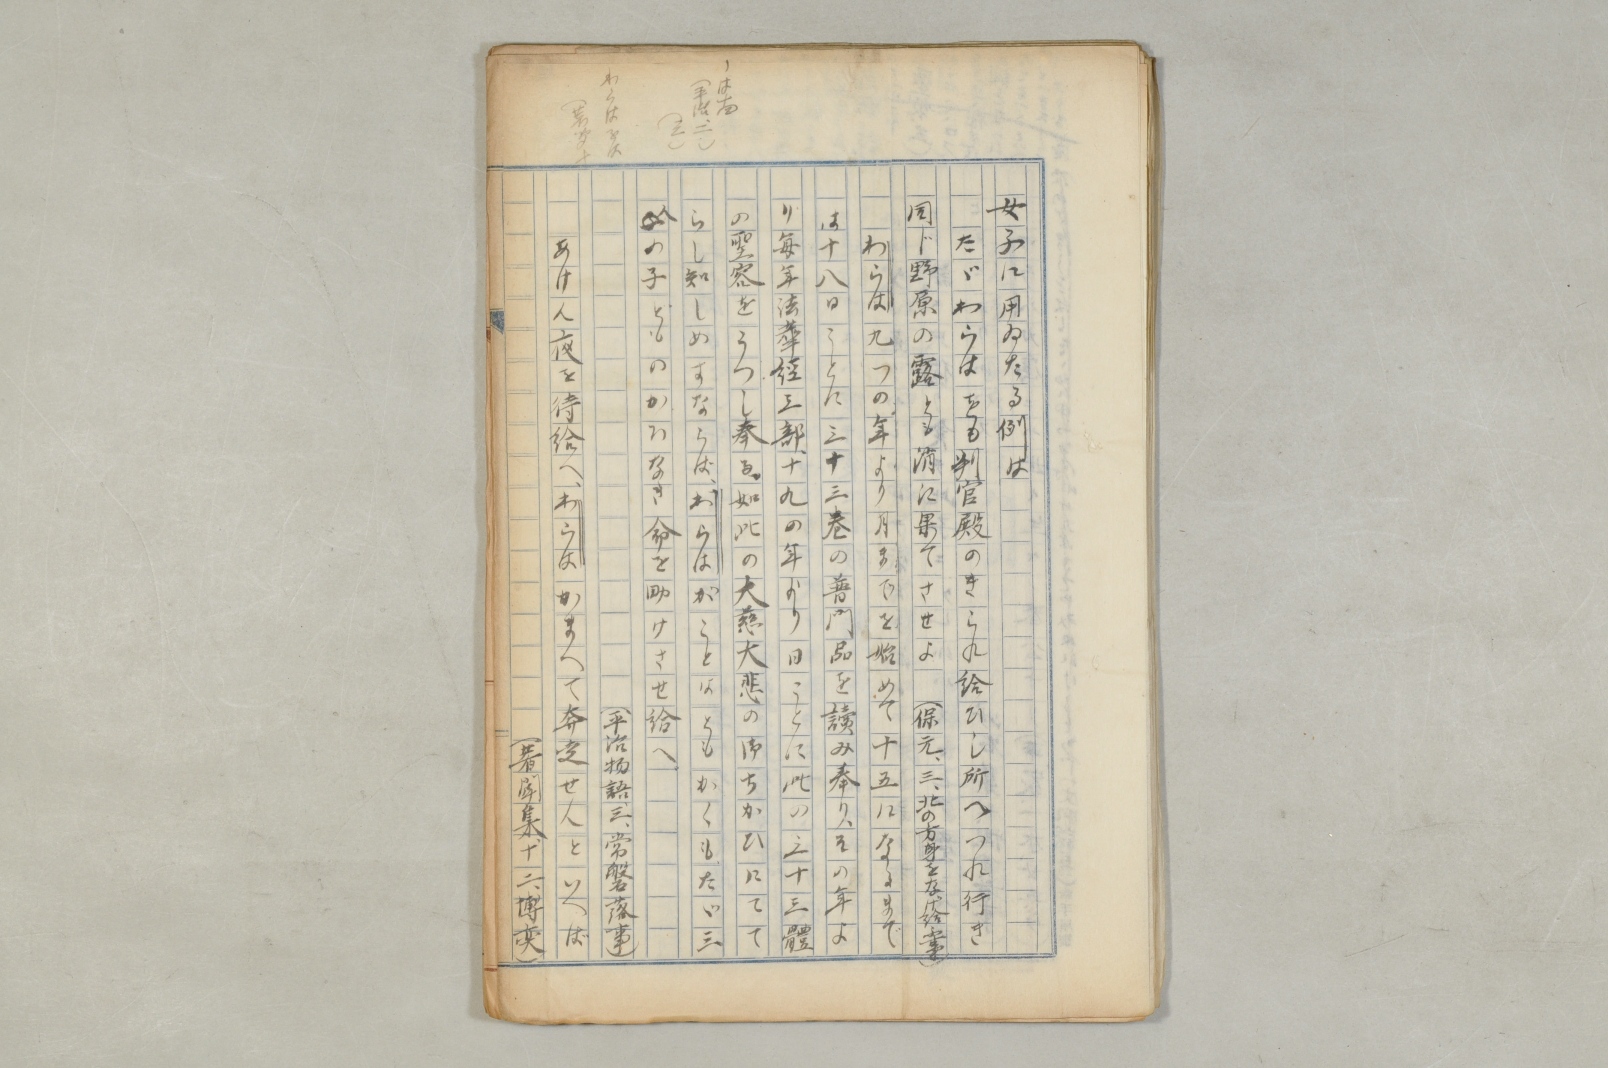 女子に用ゐたる例は
たゞわらはをも判官殿のきられ給ひし所へつれ行き
同じ野原の露とも消に果てさせよ (保元、三、北の方身をなげ給事)
わらは九つの年より月まうでを始めて十五になるまで
は十八日ことに三十三巻の普門品を讀み奉り、その年よ
り毎年法華經三部、十九の年より日ことに此の三十三體
の聖容をうつし奉る、如此の大慈大悲の御ちかひにてて
らし知しめすならば、わらはがことはともかくもたゞ三
人の子どものかひなき命を助けさせ給へ、
(平治物語三、常磐落事)
あけん夜を待給へ、わらはかまへて奔走せんといへば
(著聞集十二、博奕)
(平治、三)
わらはをば